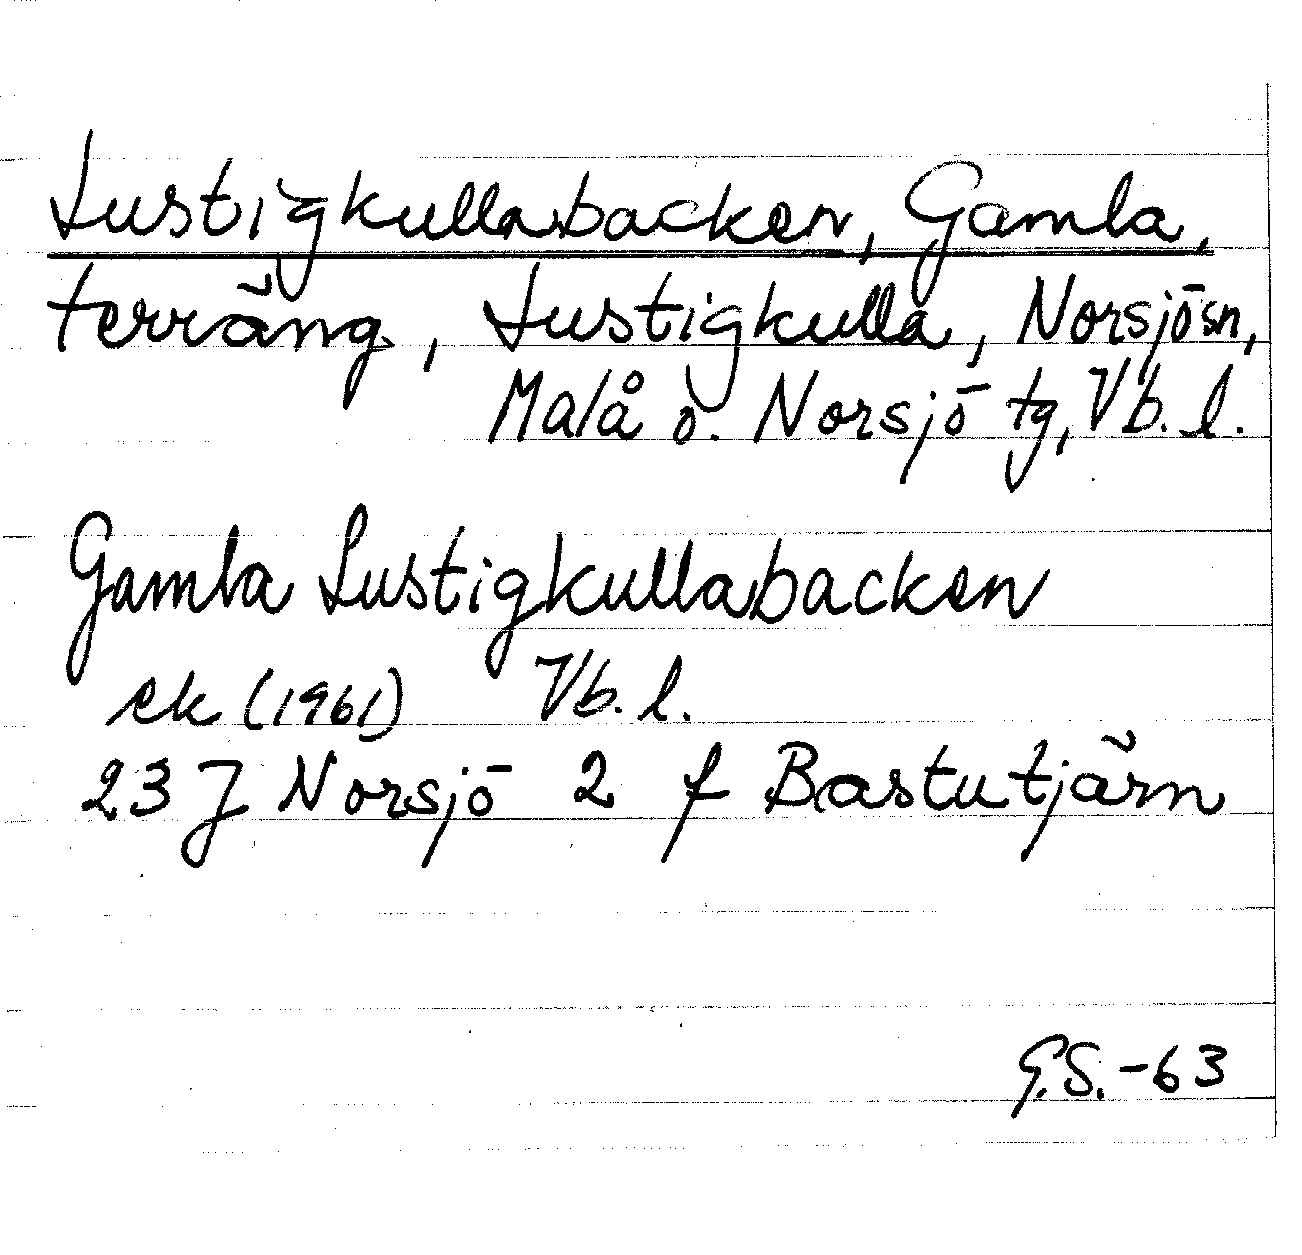 Lustigkullabacken, Gamla,
terräng, Lustigkulla, Norsjö sn,
Malå o. Norsjö tg, Vb. l.
Gamla Lustigkullabacken
ek (1961) Vb. l.
23 J Norsjö 2 f Bastutjärn
G.S. -63